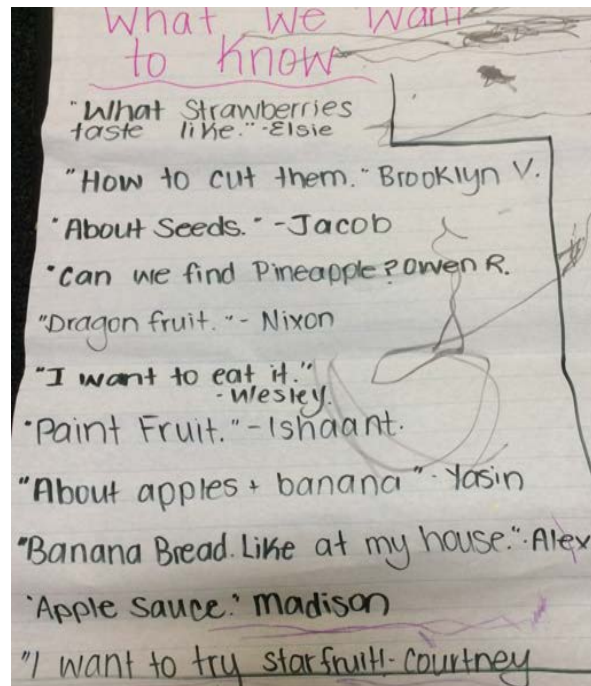 What We Want
to Know
"What Strawberries
taste like." -Elsie
"How to cut them." Brooklyn V.
"About Seeds." -Jacob
"Can we find Pineapple? Owen R.
"Dragon fruit." - Nixon
"I want to eat it."
- Wesley.
"Paint Fruit." - Ishaant.
"About apples + banana" - Yasin
"Banana Bread. Like at my house." - Alex
"Apple Sauce." Madison
"I want to try starfruit!- Courtney